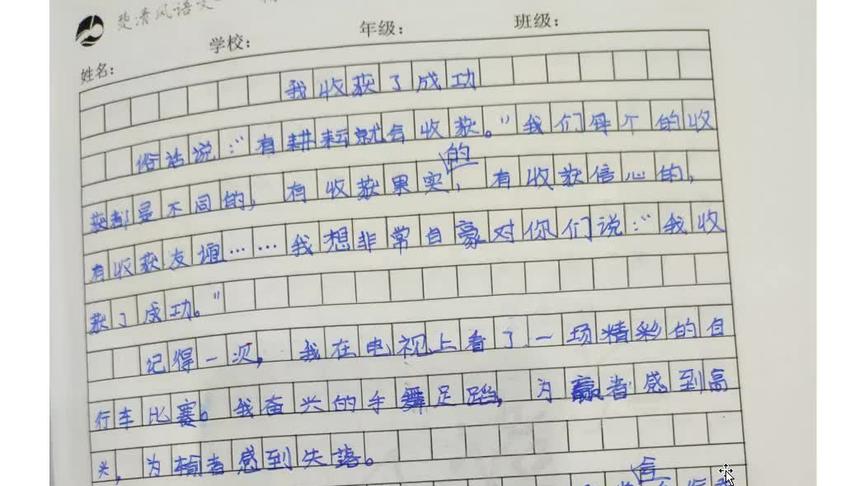 楚清风语文
学校： 年级： 班级：
姓名：
我收获了成功
俗话说：“有耕耘就会收获。”我们每个的收
获都是不同的，有收获果实的，有收获信心的，
有收获友谊……我想非常自豪对你们说：“我收
获了成功。”
记得一次，我在电视上看了一场精彩的自
行车比赛。我奋兴的手舞足蹈，为赢者感到高
兴，为输者感到失落。